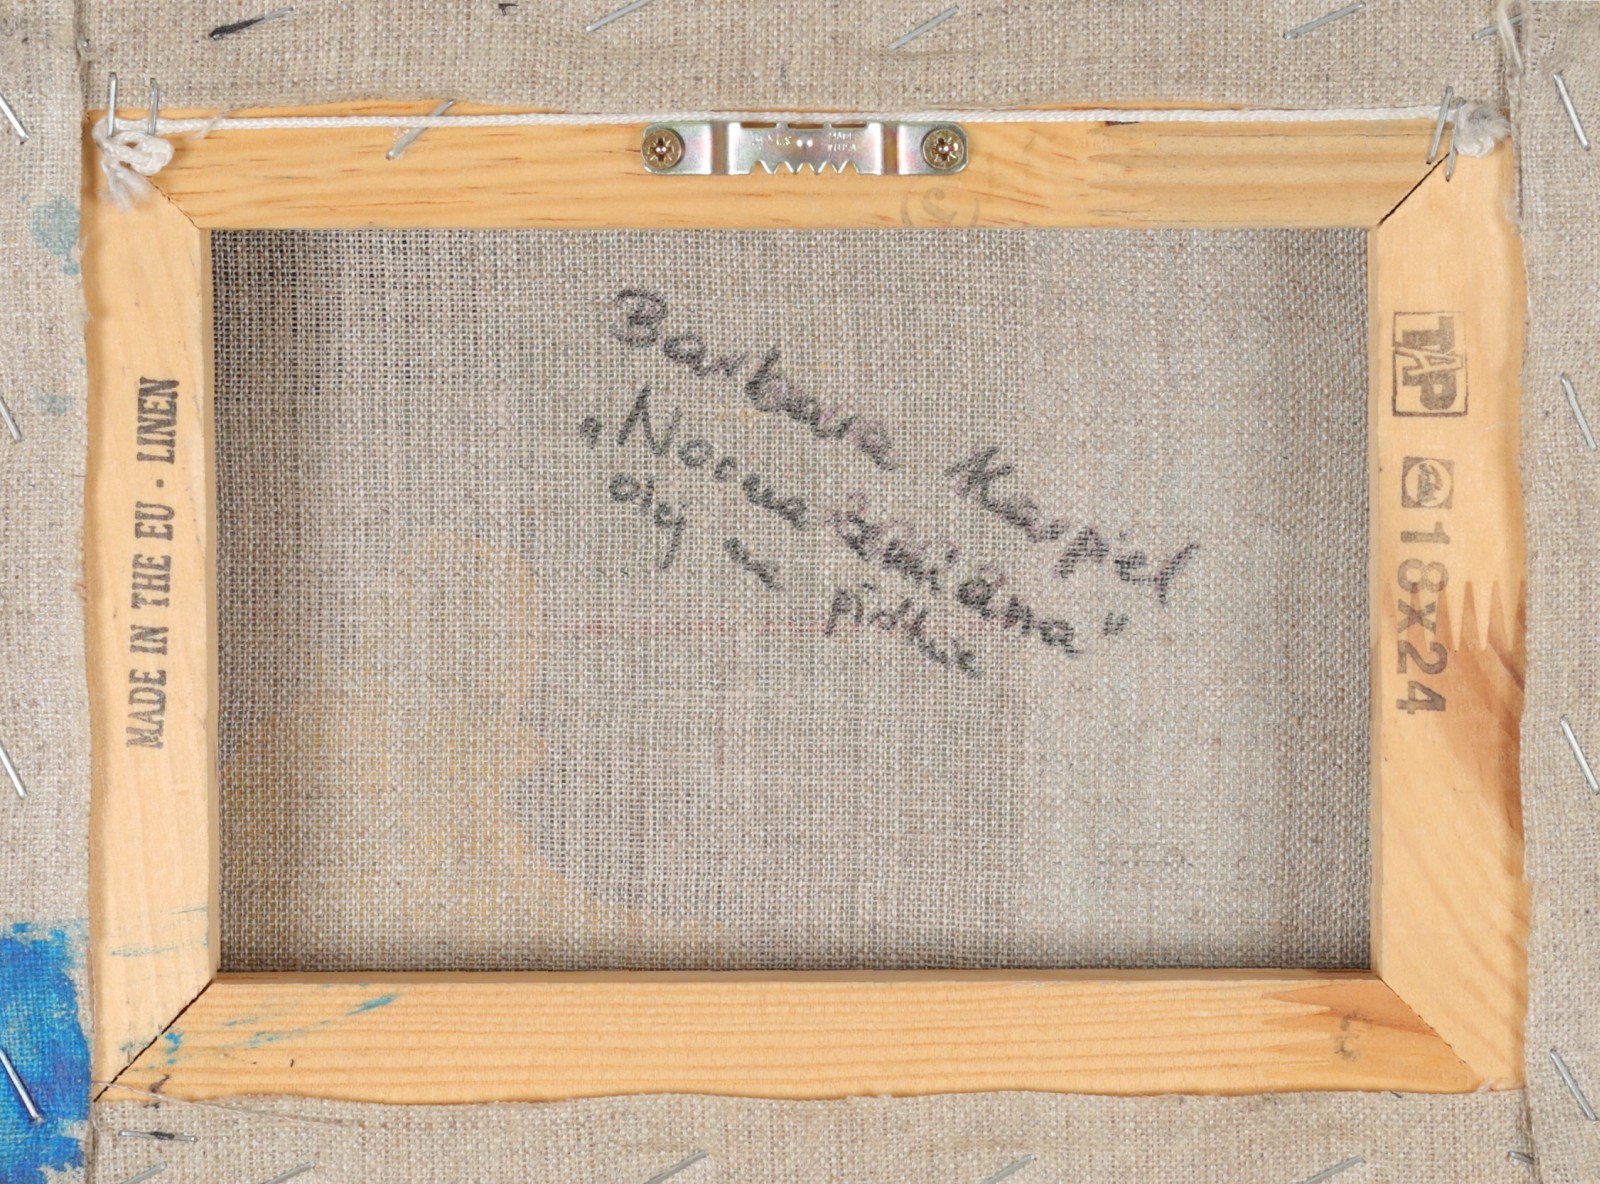 Barbara Maspiel
„Nocna zmiana"
olej na płótnie
MADE IN THE EU · LINEN
TAP
a 18x24